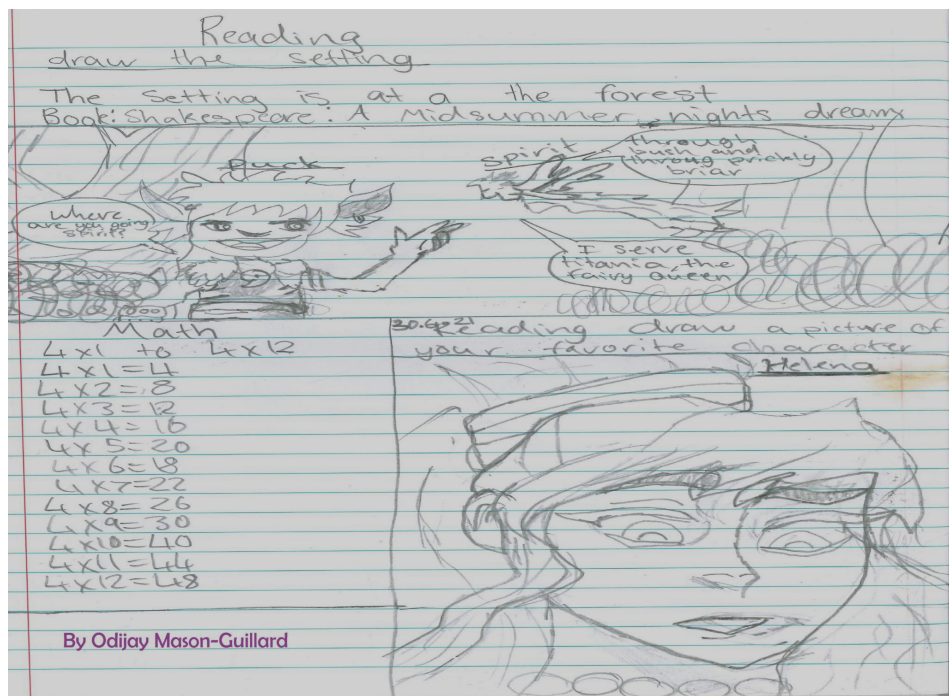 Reading
draw the setting
The Setting is at a the forest
Book: Shakespeare: A Midsummer nights dream
Puck
Spirit
throug
bush and
throug prickly
briar
where
are you going
spirit?
I serve
titania, the
fairy queen
Math
4x1 to 4x12
4x1=4
4x2=8
4x3=12
4x4=16
4x5=20
4x6=18
4x7=22
4x8=26
4x9=30
4x10=40
4x11=44
4x12=48
30.6.21
Reading draw a picture of
your favorite character
Helena
By Odijay Mason-Guillard